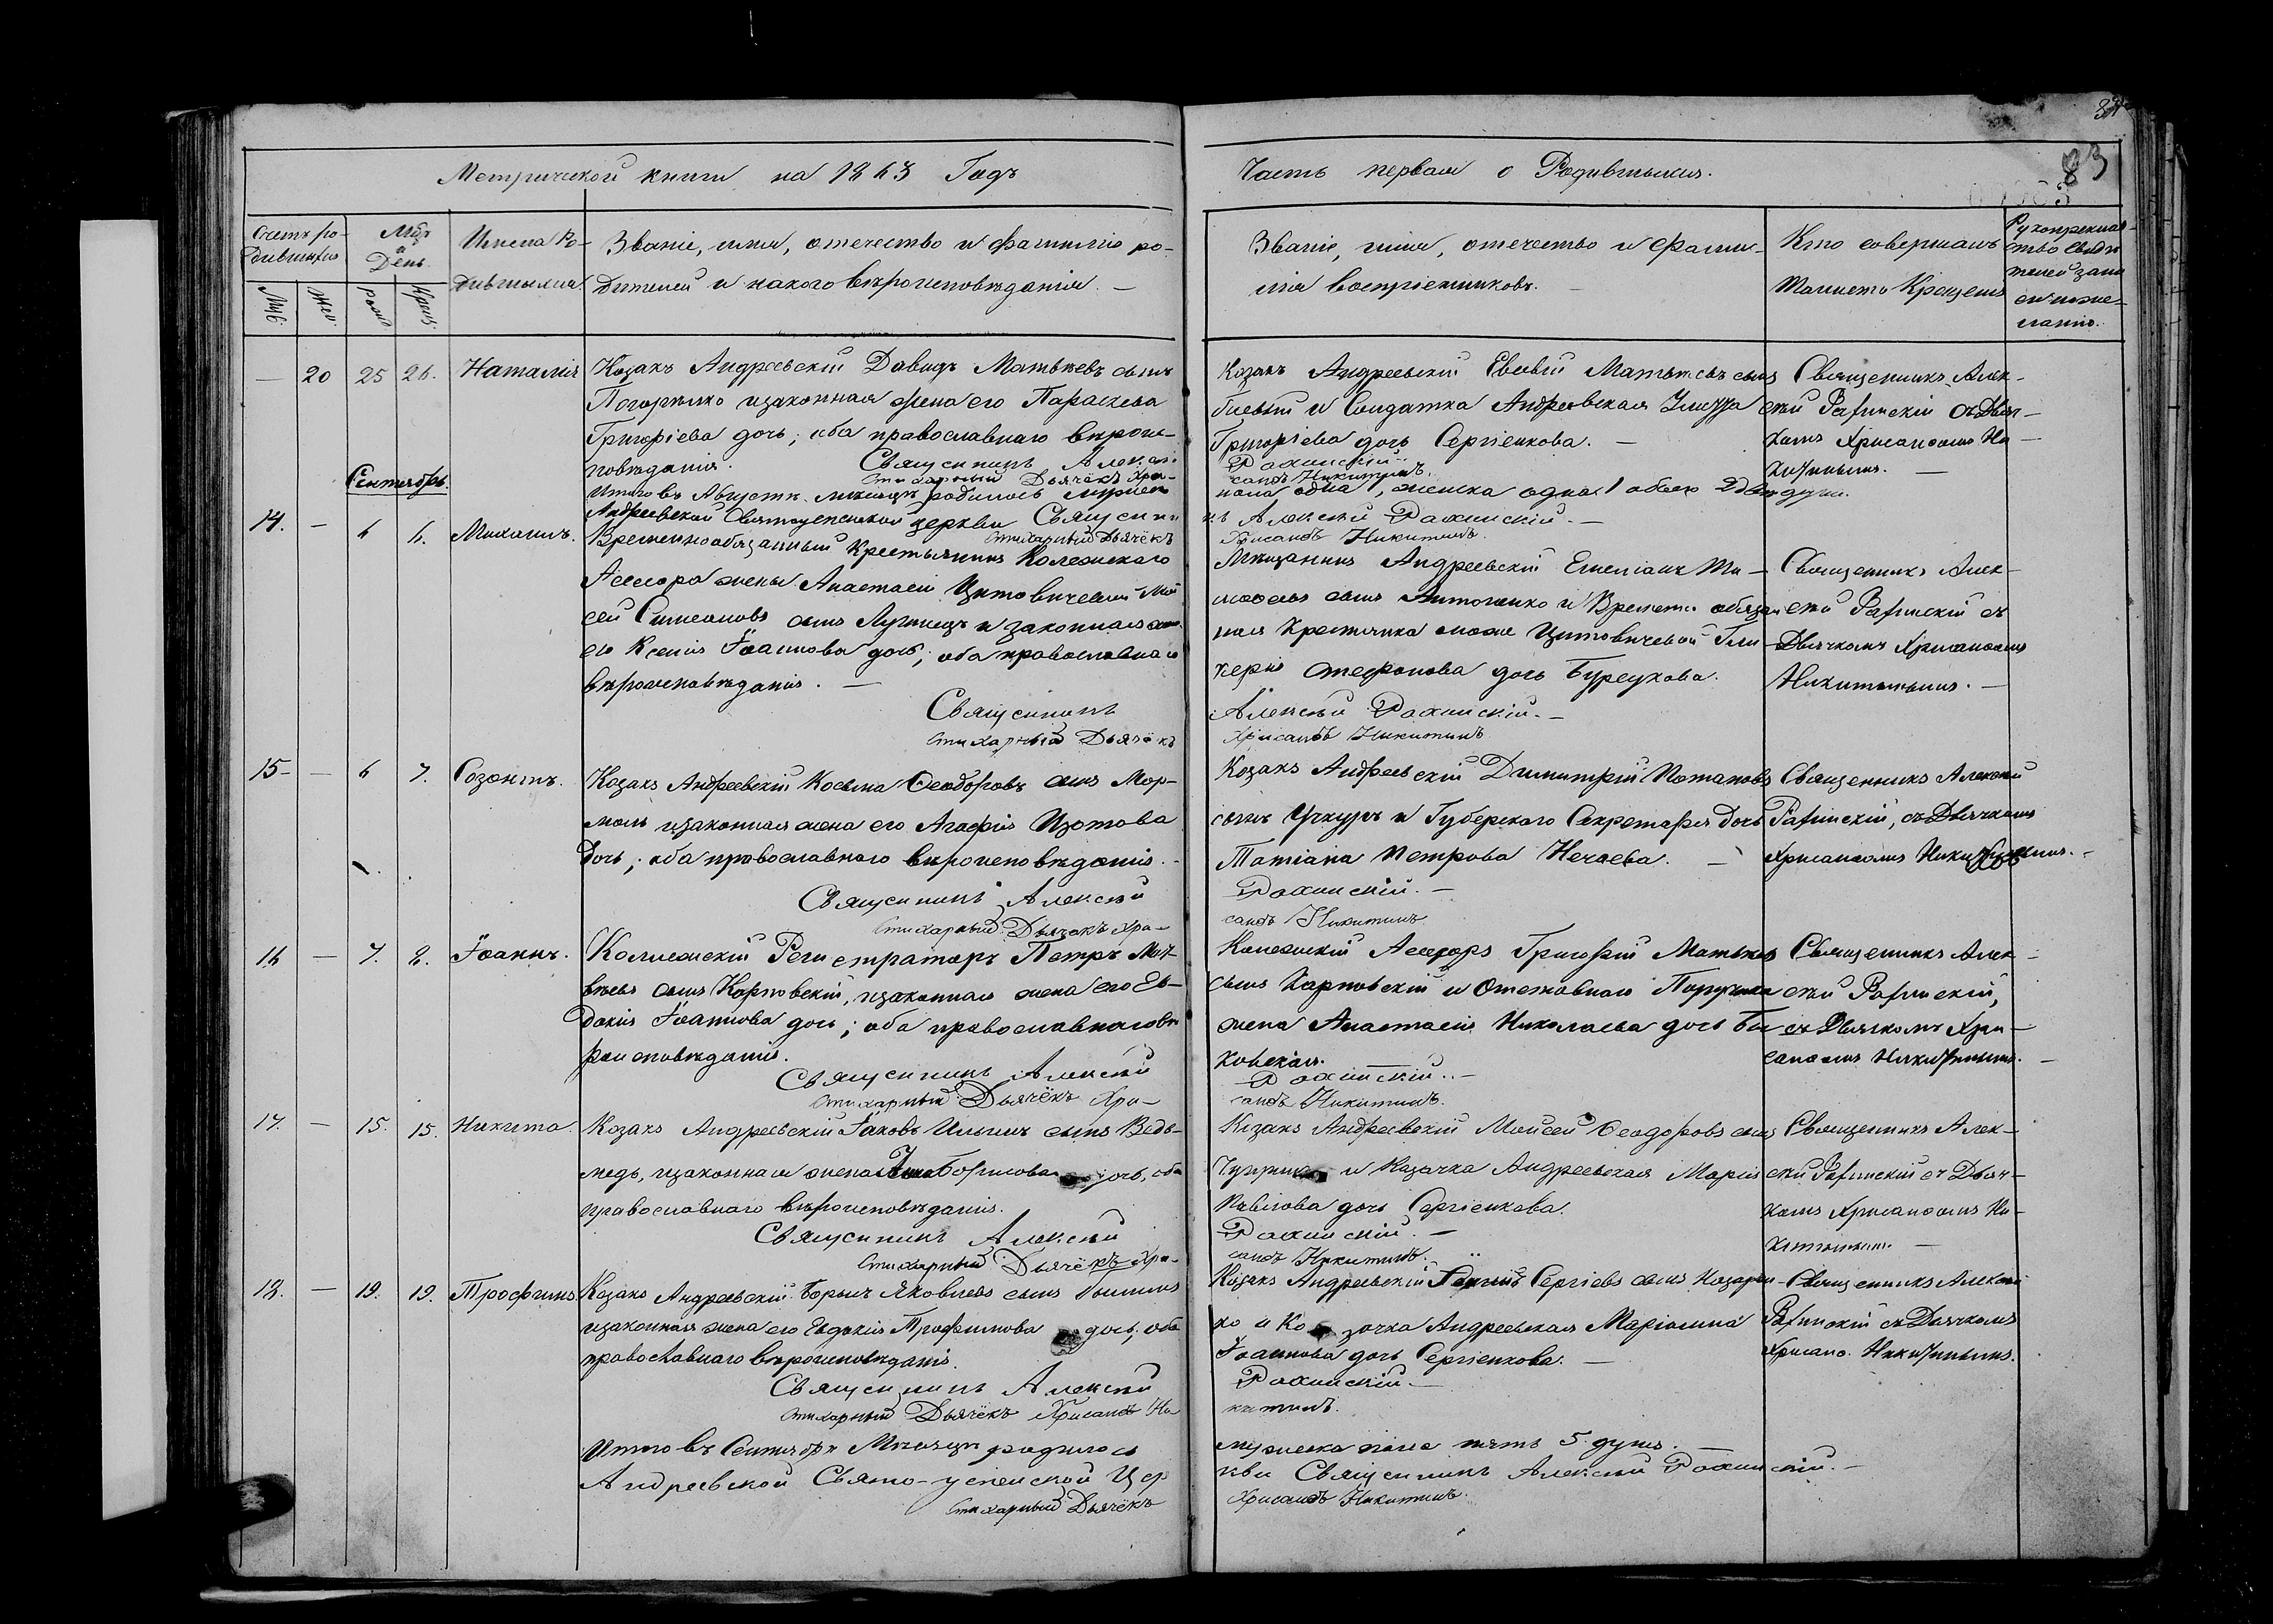 83
Метрической книги на 1863 Годъ
Часть первая о Родившихся.
Счетъ ро-
дившихся
Муж.
Жен.
Мѣс.
и
День.
рожд.
Крещ.
Имена Ро-
дившихся
Званіе, имя, отечество и фамилія ро-
дителей и какого вѣроисповѣданія. —
Званіе, имя, отечество и фами-
лія воспріемниковъ. —
Кто совершалъ
Таинство Крещенія
Рукоприклад-
ство свидѣ-
телей записи
по же-
ланію.
— 20 25 26. Наталія
Козакъ Андреевскій Давидъ Матвѣевъ сынъ
Погорѣлко и законная жена его Параскева
Григоріева дочь; оба православнаго вѣроис-
повѣданія.
Священникъ Алексѣй
Стихарный Дьячёкъ Хри-
Козакъ Андреевскій Евсевій Матвѣевъ сынъ
и Солдатка Андреевская
Григоріева дочь Сергіенкова. —
Рахинскій
санѳъ Никитинъ.
Священникъ Алек-
сѣй Рахинскій съ Дьяч-
комъ Хрисанѳомъ Ни-
китинымъ. —
Итого въ Августѣ мѣсяцѣ родилось мужеск
пола одна, женска одна 1 обоего 2 двѣ души.
Андреевской Святоуспенской церкви Священни
къ Алексѣй Рахинскій. —
Стихарный Дьячёкъ
Хрисанѳъ Никитинъ.
Сентябрь.
14. — 6 6. Михаилъ.
Временнообязанный Крестьянинъ Колежскаго
Асессора жены Анастасіи Цитовичевой Мой
сей Симеоновъ сынъ Лугинецъ и законная жена
его Ксенія Іоаннова дочь; оба православнаго
вѣроисповѣданія. —
Священникъ
Стихарный Дьячёкъ
Мѣщанинъ Андреевскій Емеліанъ Ти-
моѳеевъ сынъ Антоненко и Временно обязан
ная Крестьянка може Цитовичевой Гли
керія Стефанова дочь Бурсукова.
Алексѣй Рахинскій. —
Хрисанѳъ Никитинъ
Священникъ Алек-
сѣй Рахинскій съ
Дьячкомъ Хрисанѳомъ
Никитинымъ. —
15 — 6 7. Созонтъ.
Козакъ Андреевскій Косьма Ѳеодоровъ сынъ Мор-
моль и законная жена его Агафія Изотова
дочь; оба православнаго вѣроисповѣданія.
Священникъ Алексѣй
Стихарный Дьячокъ Хри-
Козакъ Андреевскій Димитрій Потаповъ
сынъ Учкуръ и Губерскаго Секретаря дочь
Татіана Петрова Нечаева. —
Рахинскій. —
санѳъ Никитинъ
Священникъ Алексѣй
Рахинскій, съ Дьячкомъ
Хрисанѳомъ Никитинымъ. —
16 — 7. 8. Іоаннъ.
Коллежскій Регистраторъ Петръ Мат-
вѣевъ сынъ Карповскій, и законная жена его Ев-
докія Іоаннова дочь; оба православнаго вѣ
роисповѣданія.
Священникъ Алексѣй
Стихарный Дьячёкъ Хри-
Колежскій Асессоръ Григорій Матвѣевъ
сынъ Карповскій и Отставнаго Поручика
жена Анастасія Николаева дочь Бы
ковская.
Рахинскій. —
санѳъ Никитинъ.
Священникъ Алек-
сѣй Рахинскій,
съ Дьячкомъ Хри-
санѳомъ Никитинымъ. —
17. — 15. 15. Никита.
Козакъ Андреевскій Іаковъ Ильинъ сынъ Ведь-
медь, и законная жена Анна Борисова дочь, оба
православнаго вѣроисповѣданія.
Священникъ Алексѣй
Стихарный Дьячёкъ Хри-
Козакъ Андреевскій Моисей Ѳеодоровъ сынъ
и Казачка Андреевская Марія
Павлова дочь Сергіенкова.
Рахинскій. —
санѳъ Никитинъ.
Священникъ Алек-
сѣй Рахинскій съ Дьяч-
комъ Хрисанѳомъ Ни-
китинымъ. —
18. — 19. 19. Трофимъ.
Козакъ Андреевскій Борысъ Яковлевъ сынъ
и законная жена его Евдокія Трофимова дочь, оба
православнаго вѣроисповѣданія.
Священникъ Алексѣй
Стихарный Дьячёкъ Хрисанѳъ Ни
Козакъ Андреевскій Сергіевъ сынъ Назарен-
ко и Козачка Андреевская Маріамна
Іоаннова дочь Сергіенкова. —
Рахинскій. —
китинъ.
Священникъ Алексѣй
Рахинскій съ Дьячкомъ
Хрисанѳ. Никитинымъ.
Итого въ Сентябрѣ Мѣсяцѣ родилось
мужеска пола пять 5. душъ.
Андреевской Свято-успенской Цер
кви Священникъ Алексѣй Рахинскій. —
Стихарный Дьячёкъ
Хрисанѳъ Никитинъ.